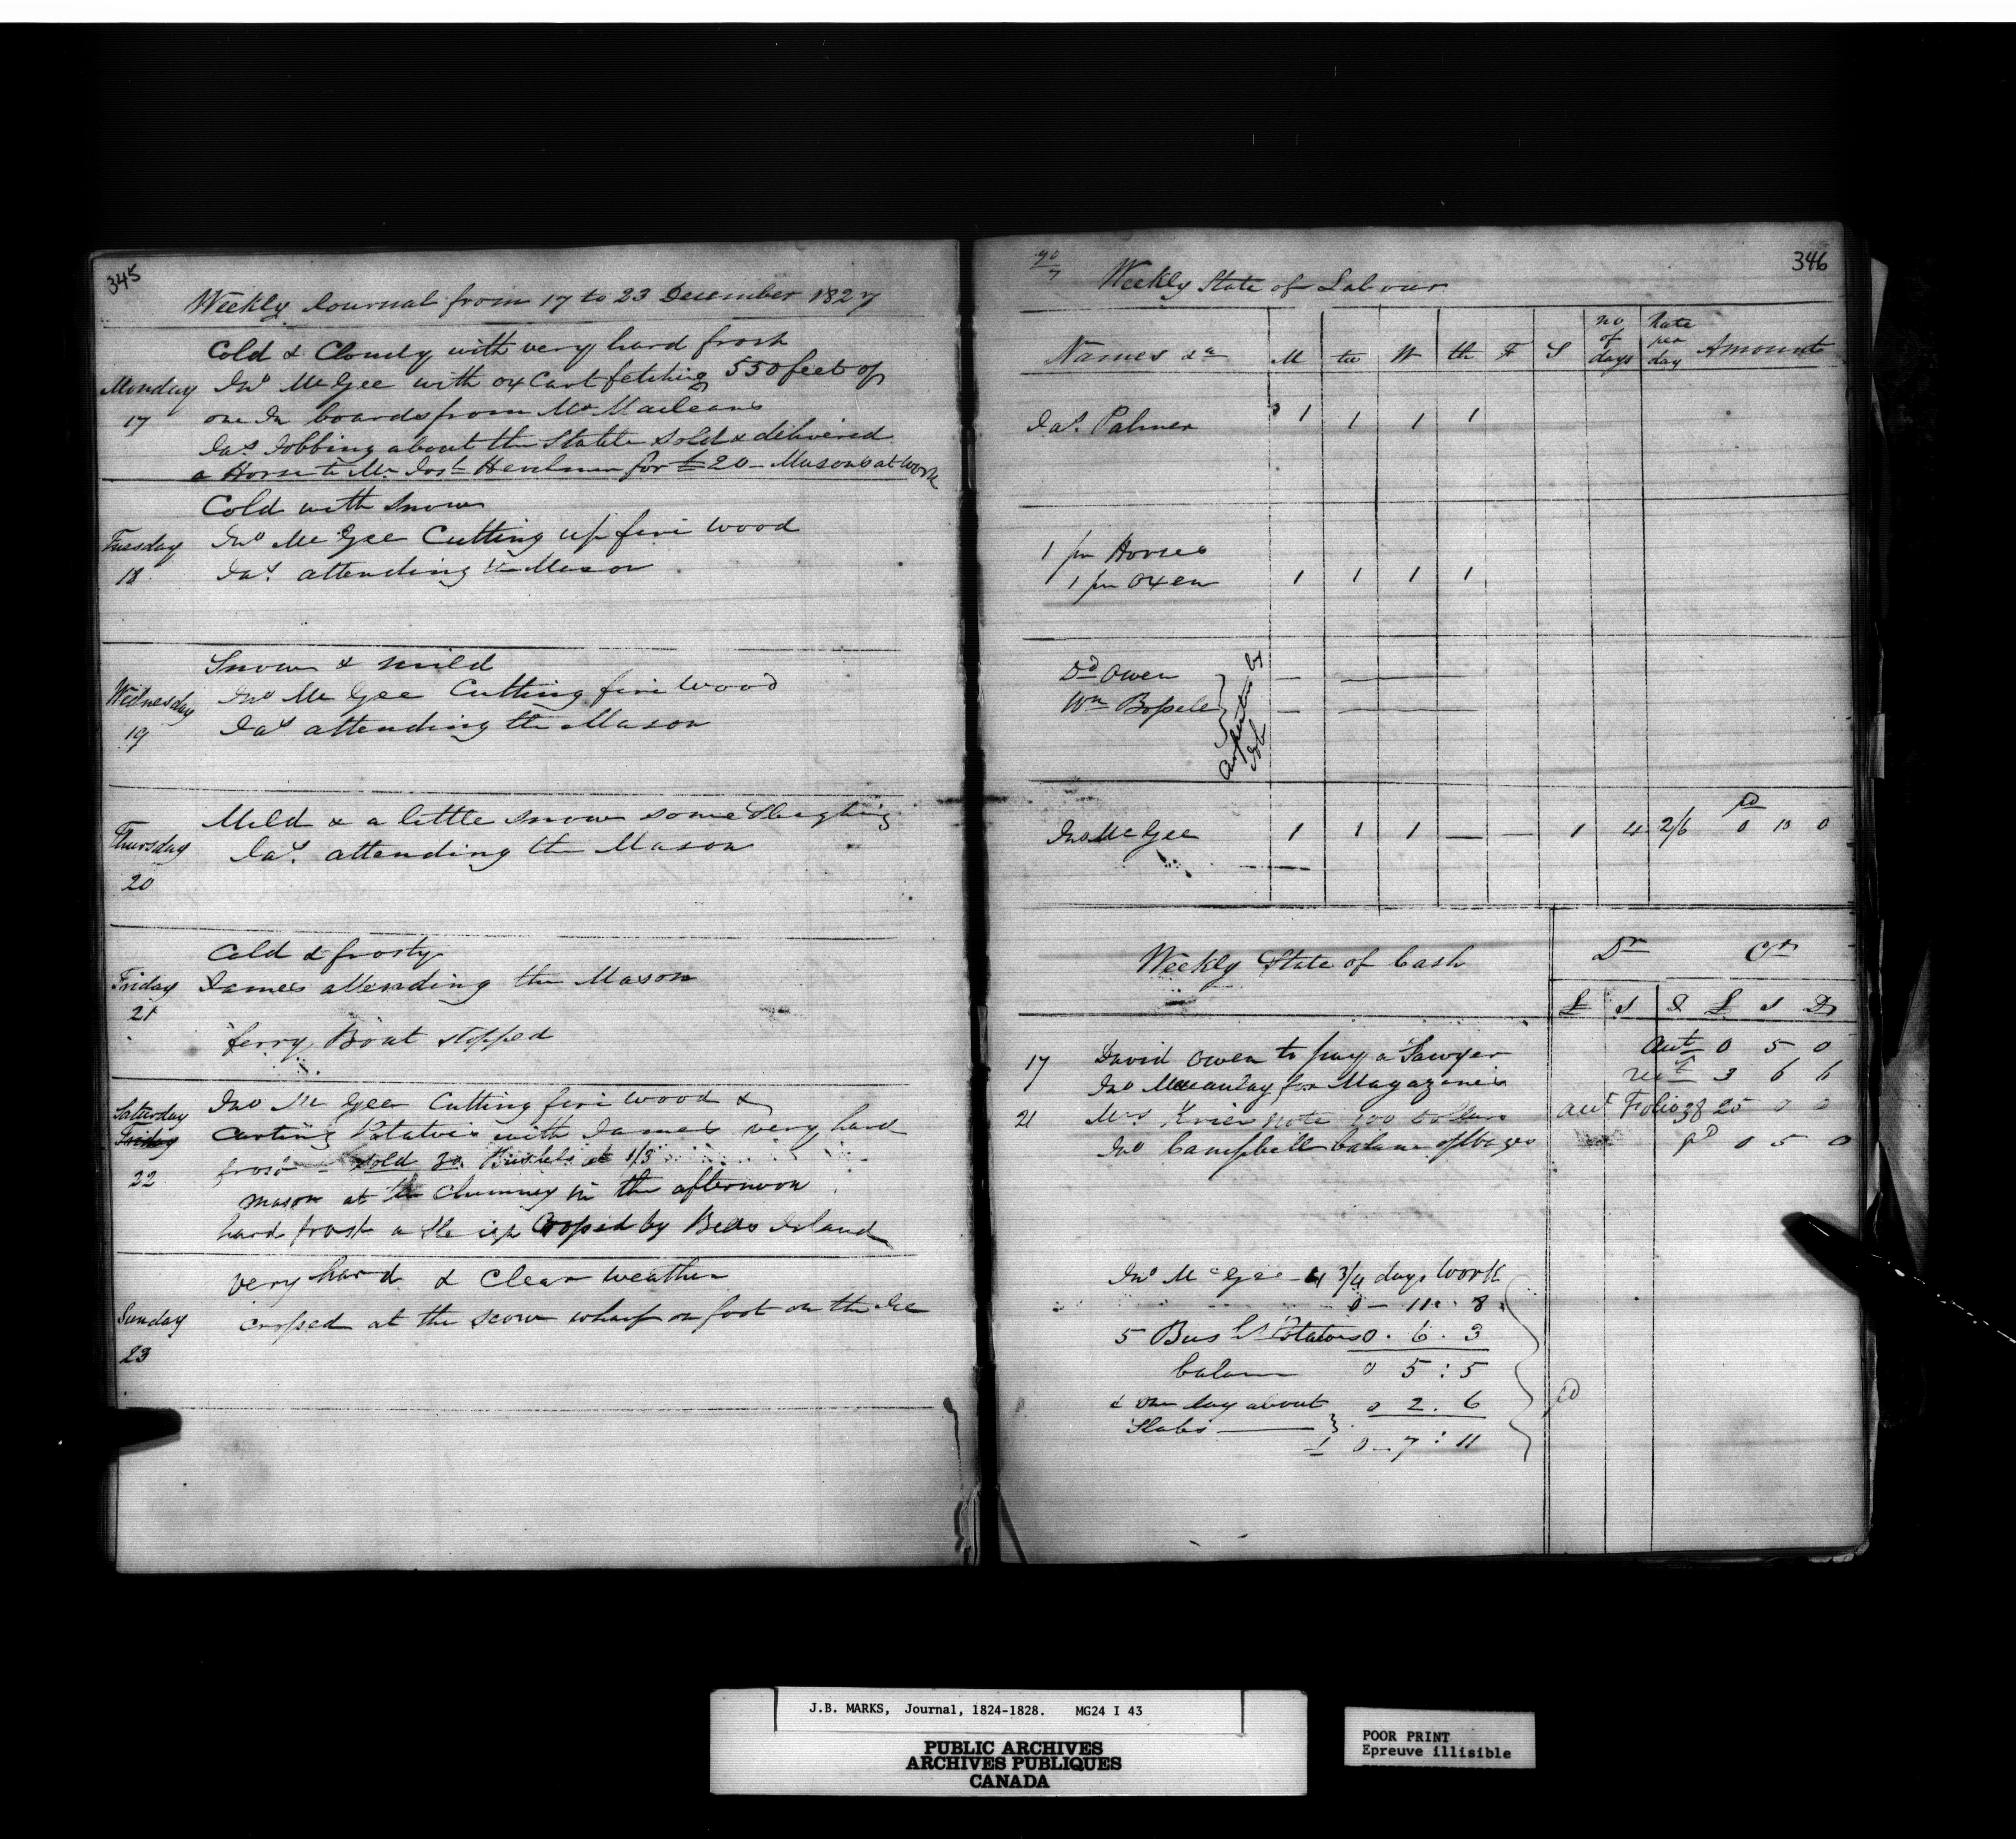 345
Weekly Journal from 17 to 23 December 1827
Cold & Cloudy with very hard frost
Monday Jno Mc Gee with ox Cart fetching 550 feet of
17 one In boards from Mr Macleans
Jas. Jobbing about the Stable sold & delivered
a Horse to Mr Josh for £20 - Masons at work
Cold with Snow
Tuesday Jno Mc Gee Cutting up fire wood
18 Jas. attending the Mason
Snow & mild
Wednesday Jno Mc Gee Cutting fire wood
19 Jas attending the Mason
Mild & a little snow some Sleighing
Thursday Jas. attending the Mason
20
Cold & frosty
Friday James attending the Mason
21
ferry Boat stopped
Saturday Jno Mc Gee Cutting fire wood &
Friday Carting Potatoes with James very hard
22 frost - sold 30 Bushels at 1/3
mason at the Chimney in the afternoon
hard frost a Sle igh Crossed by Bells Island
very hard & Clear weather
Sunday crossed at the scow wharf on foot on the Ice
23
346
Weekly State of Labour
Names &a M tu W th F S no of days Rate per day Amount
Jas. Palmer 1 1 1 1
1 pr Horses
1 pr Oxen 1 1 1 1
Dd Owen
Wm
Carpenters by Job
Jno Mc Gee 1 1 1 — — 1 4 2/6 pd 0 10 0
Weekly State of Cash Dr Cr
£ s D £ s D
17 David Owen to pay a Sawyer 0 5 0
Jno Macaulay for Magazines 3 6 6
21 Mrs note 100 Dollars Folio 38 25 0 0
Jno Campbell balance of Wages pd 0 5 0
Jno Mc Gee - 4 3/4 days Work
0 - 11 : 8
5 Bush Potatoes 0 . 6 . 3
balance 0 5 : 5
& one day about 0 2 . 6
Slabs — £ 0 - 7 : 11
pd
J.B. MARKS, Journal, 1824-1828. MG24 I 43
PUBLIC ARCHIVES
ARCHIVES PUBLIQUES
CANADA
POOR PRINT
Epreuve illisible